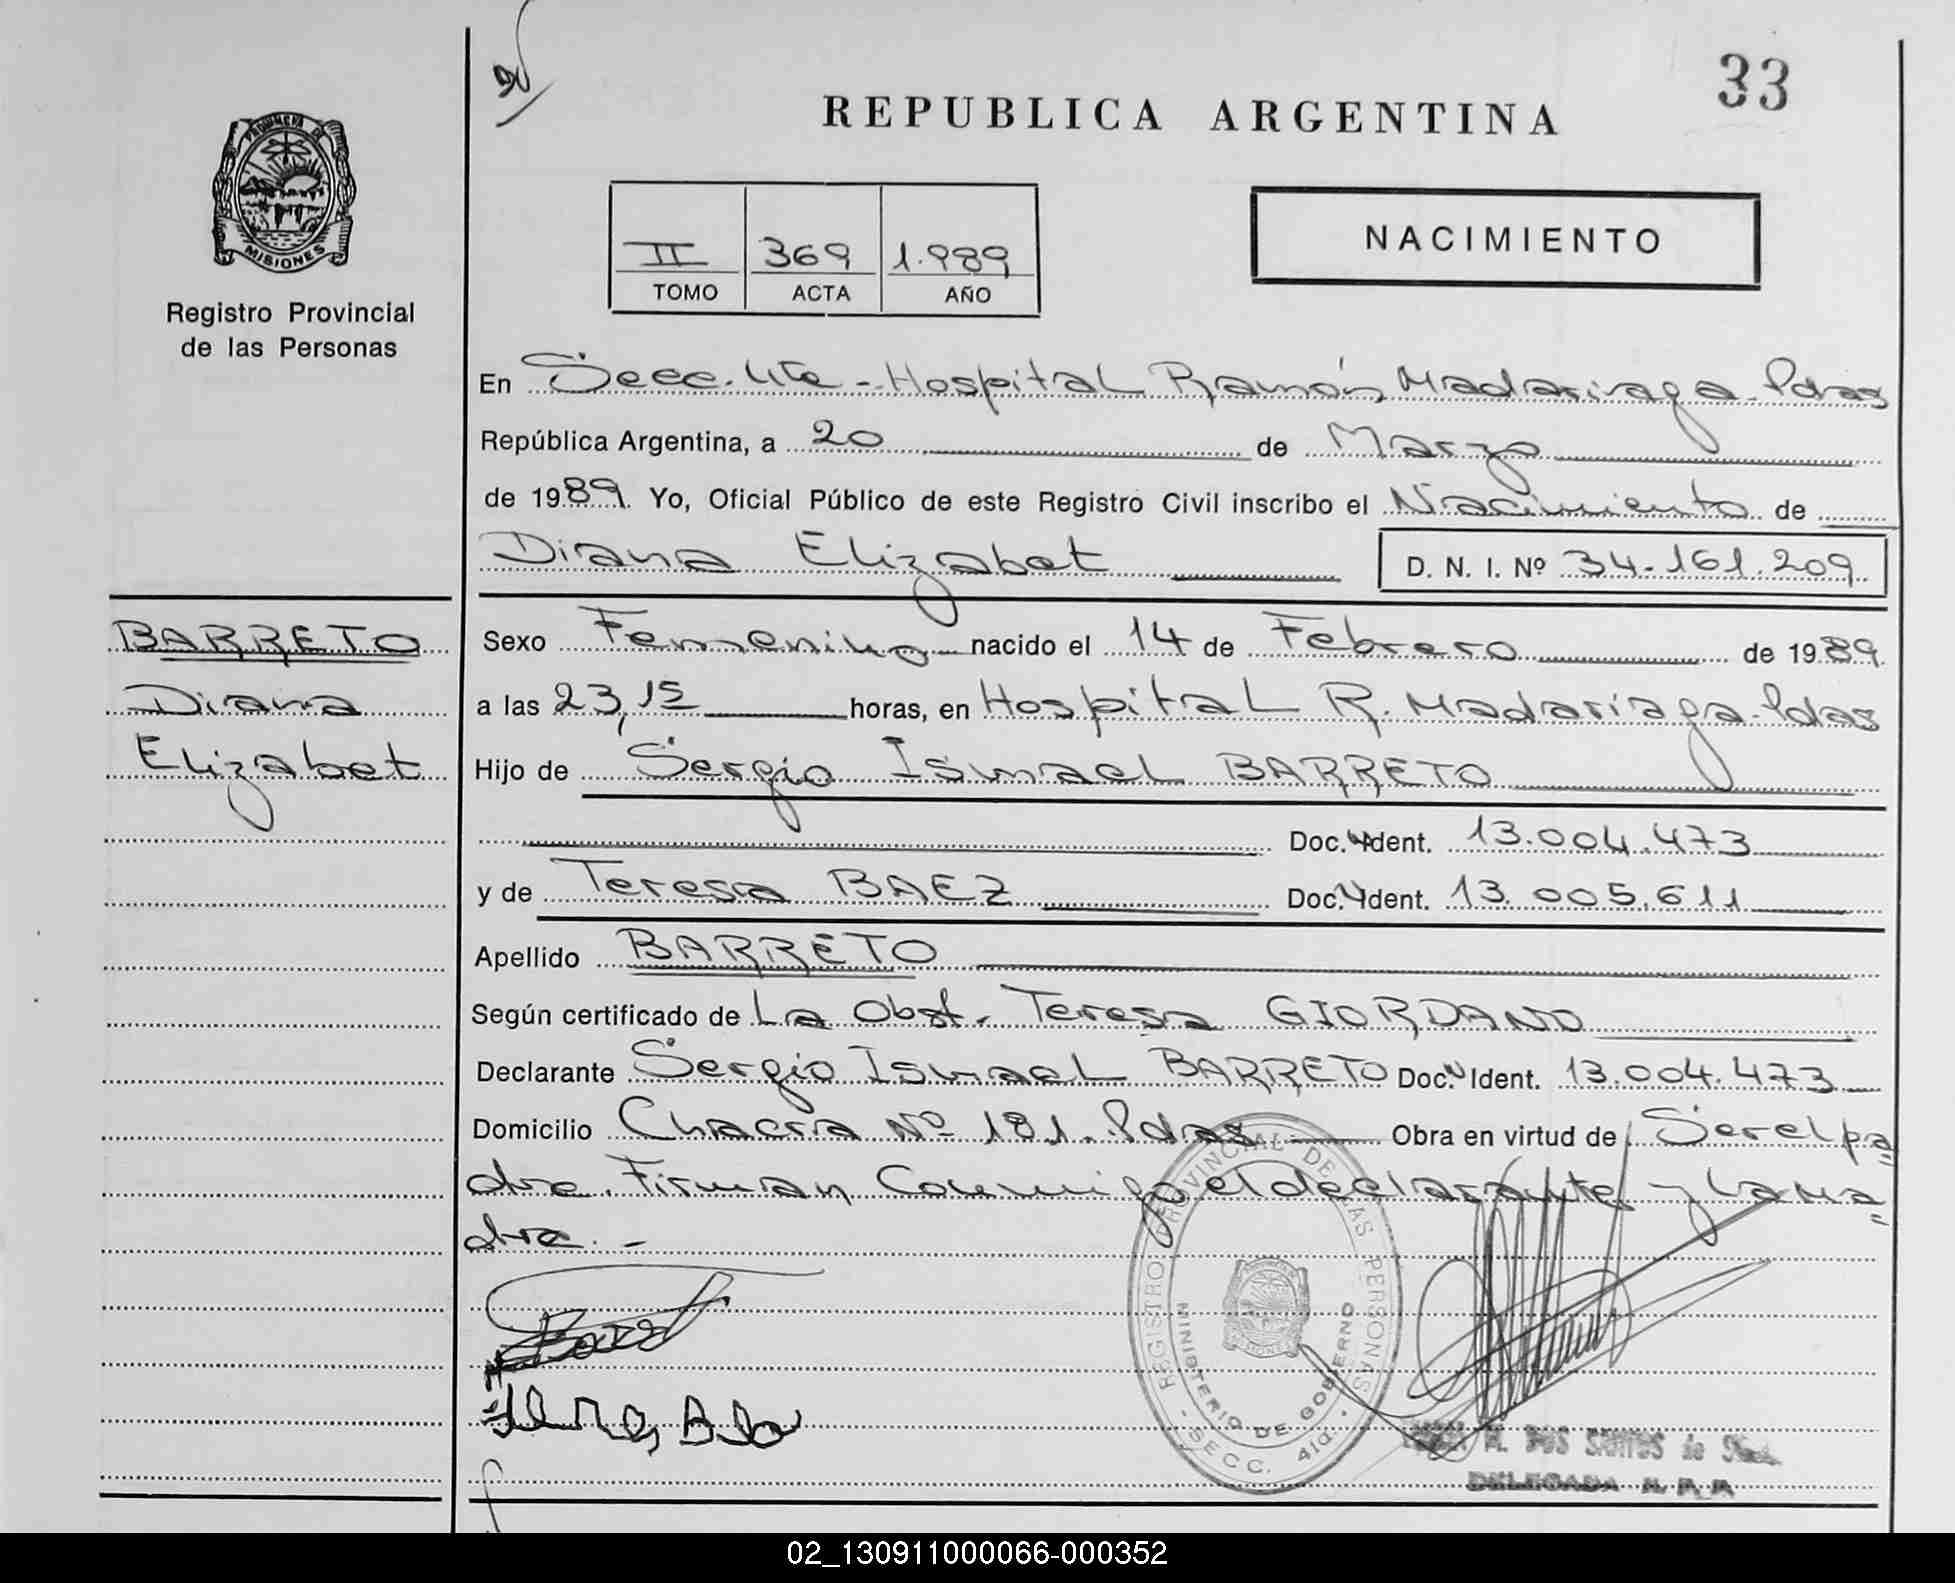 33
REPUBLICA ARGENTINA
PROVINCIA DE
MISIONES
Registro Provincial
de las Personas
II 369 1.989
TOMO ACTA AÑO
NACIMIENTO
En Secc. 41ta - Hospital Ramón Madariaga - Pdas
República Argentina, a 20 de Marzo
de 1989. Yo, Oficial Público de este Registro Civil inscribo el Nacimiento de
Diana Elizabet D. N. I. Nº 34.161.209
BARRETO
Diana
Elizabet
Sexo Femenino nacido el 14 de Febrero de 1989
a las 23,15 horas, en Hospital R. Madariaga - Pdas
Hijo de Sergio Ismael BARRETO
Doc. Ident. 13.004.473
y de Teresa BAEZ Doc. Ident. 13.005.611
Apellido BARRETO
Según certificado de La Obst. Teresa GIORDANO
Declarante Sergio Ismael BARRETO Doc. Ident. 13.004.473
Domicilio Chacra Nº 181. Pdas Obra en virtud de Ser el pa=
dre. Firman Conmigo el declarante y la ma=
dre. -
REGISTRO PROVINCIAL DE LAS PERSONAS
MINISTERIO DE GOBIERNO
- SECC. 41a. -
M. DOS SANTOS de
DELEGADA R. P. P.
02_130911000066-000352